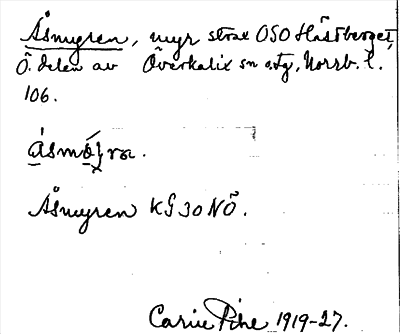 Åsmyren, myr strax OSO Hästberget,
Ö. delen av Överkalix sn o. tg, Norrb. l.
106.
Åsmyren KG 30 NÖ.
Carin Pihl 1919-27.